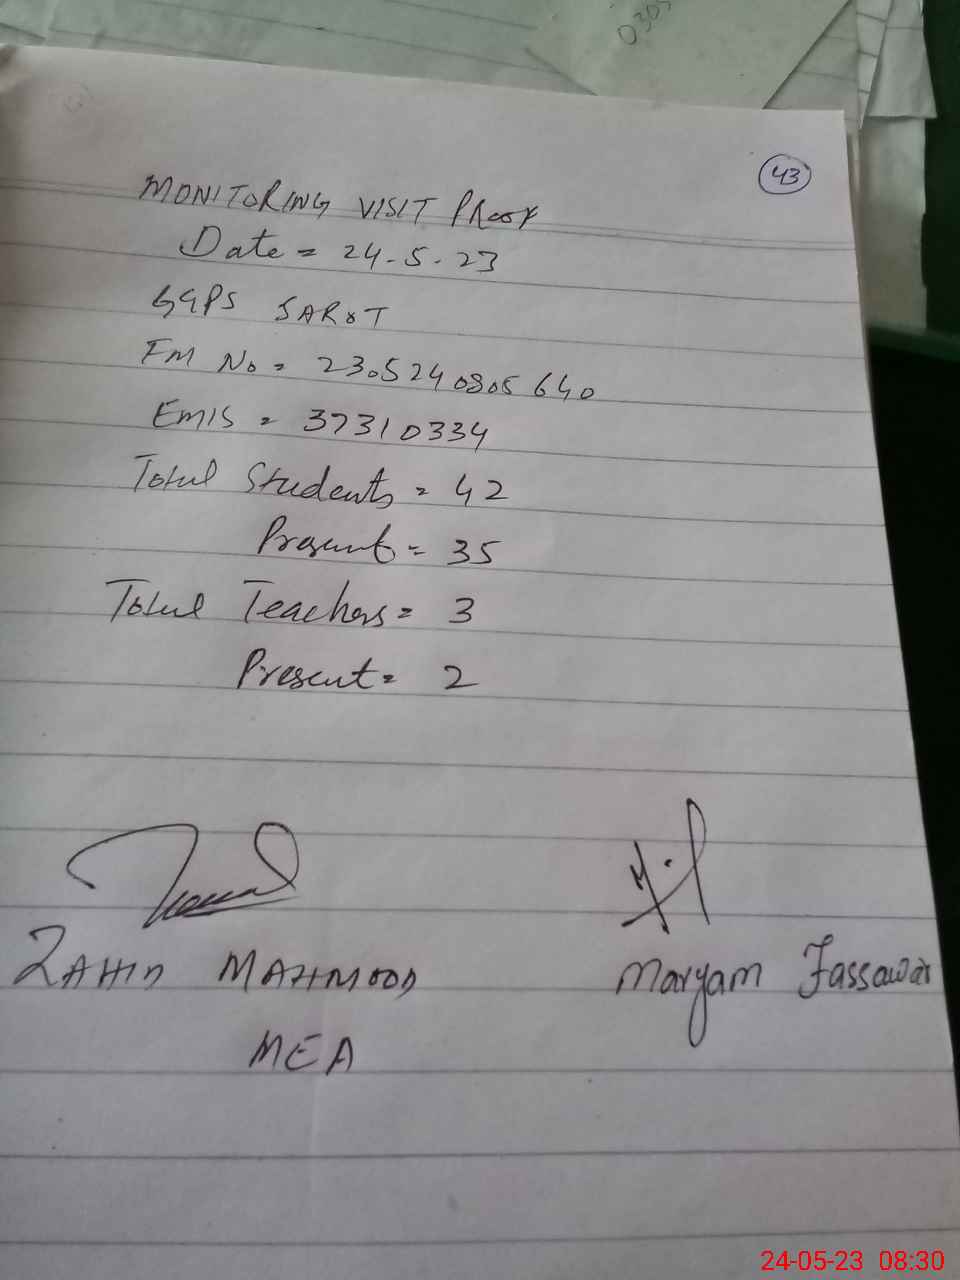 0305
43
MONITORING VISIT PROOF
Date = 24-5-23
GGPS SAROT
FM No = 2305240805640
EMIS = 37310334
Total Students = 42
Present = 35
Total Teachers = 3
Present = 2
ZAHID MAHMOOD
Maryam Tassawar
MEA
24-05-23 08:30